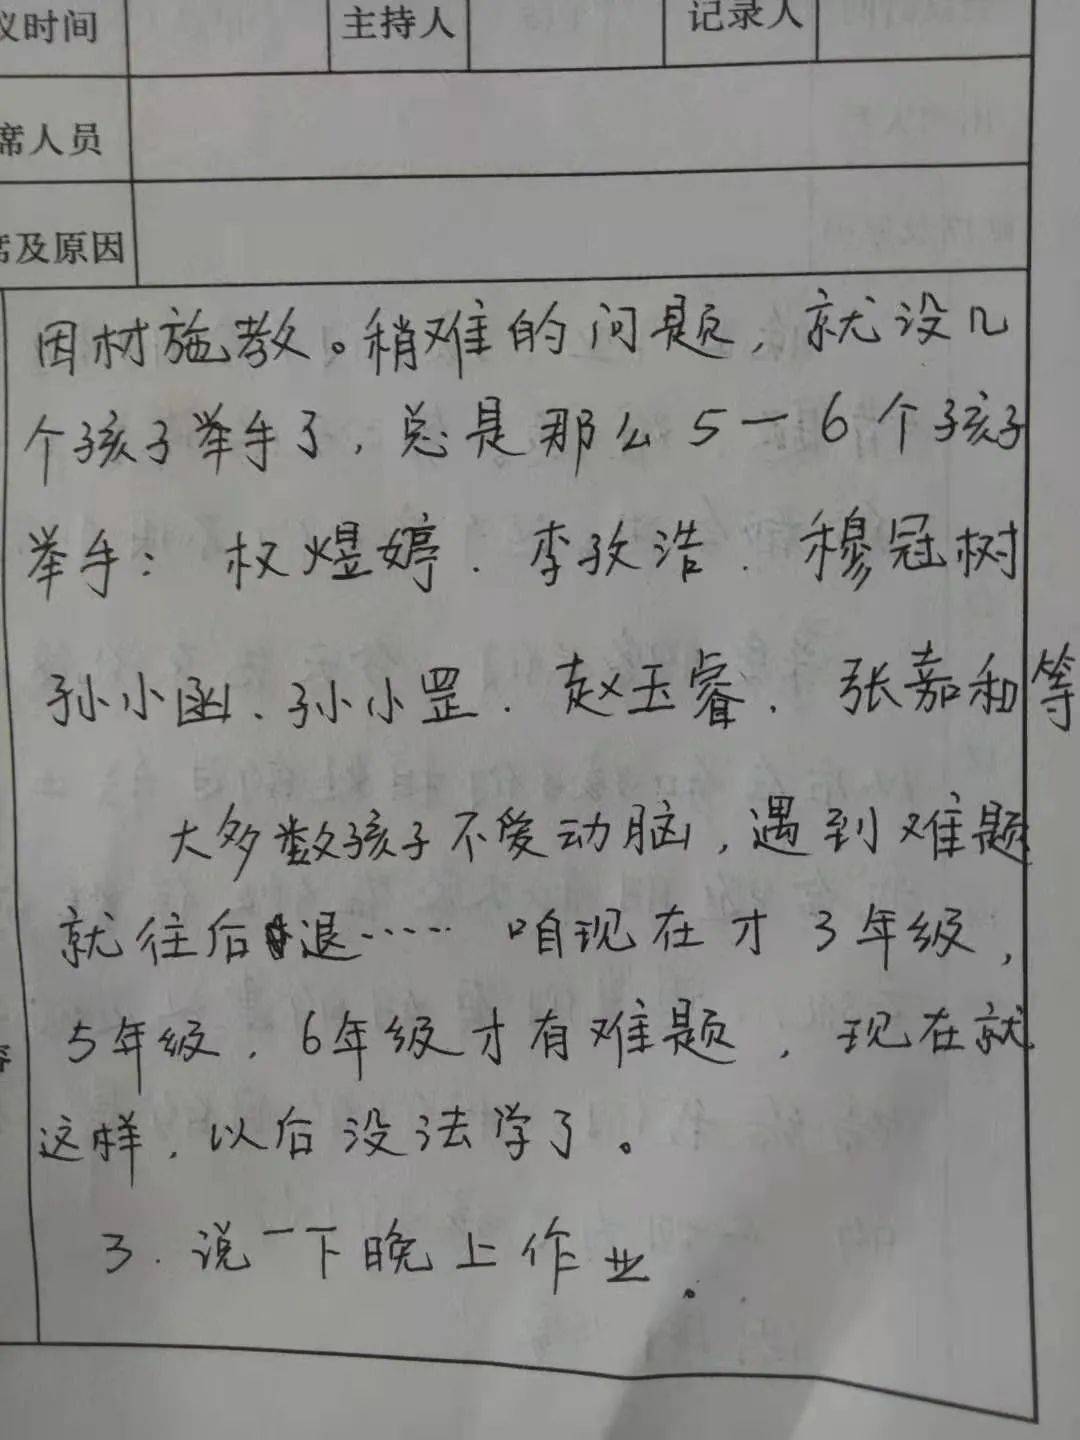 议时间 主持人 记录人
席人员
席及原因
因材施教。稍难的问题，就没几
个孩子举手了，总是那么5一6个孩子
举手：权煜婷．李孜浩．穆冠树
孙小函、孙小罡．赵玉睿．张嘉和等
大多数孩子不爱动脑，遇到难题
就往后退…… 咱现在才3年级，
5年级．6年级才有难题，现在就
这样，以后没法学了。
3．说一下晚上作业。
容